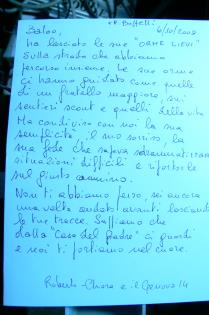 6/10/2008
Baloo,
ha lasciato le sue "ORME LIEVI"
sulla strada che abbiamo
percorso insieme. Le sue orme
ci hanno guidato come quelle
di un fratello maggiore, sui
sentieri scout e quelli della vita
Ha condiviso con noi la sua
semplicità, il suo sorriso, la
sua fede che sapeva sdrammatizzare
situazioni difficili e riportarle
sul giusto cammino.
Non ti abbiamo perso, sei ancora
una volta andato avanti lasciando
le tue tracce. Sappiamo che
dalla "Casa del padre" ci guardi
e noi ti portiamo nel cuore.
Roberto - Chiara e il Genova 14